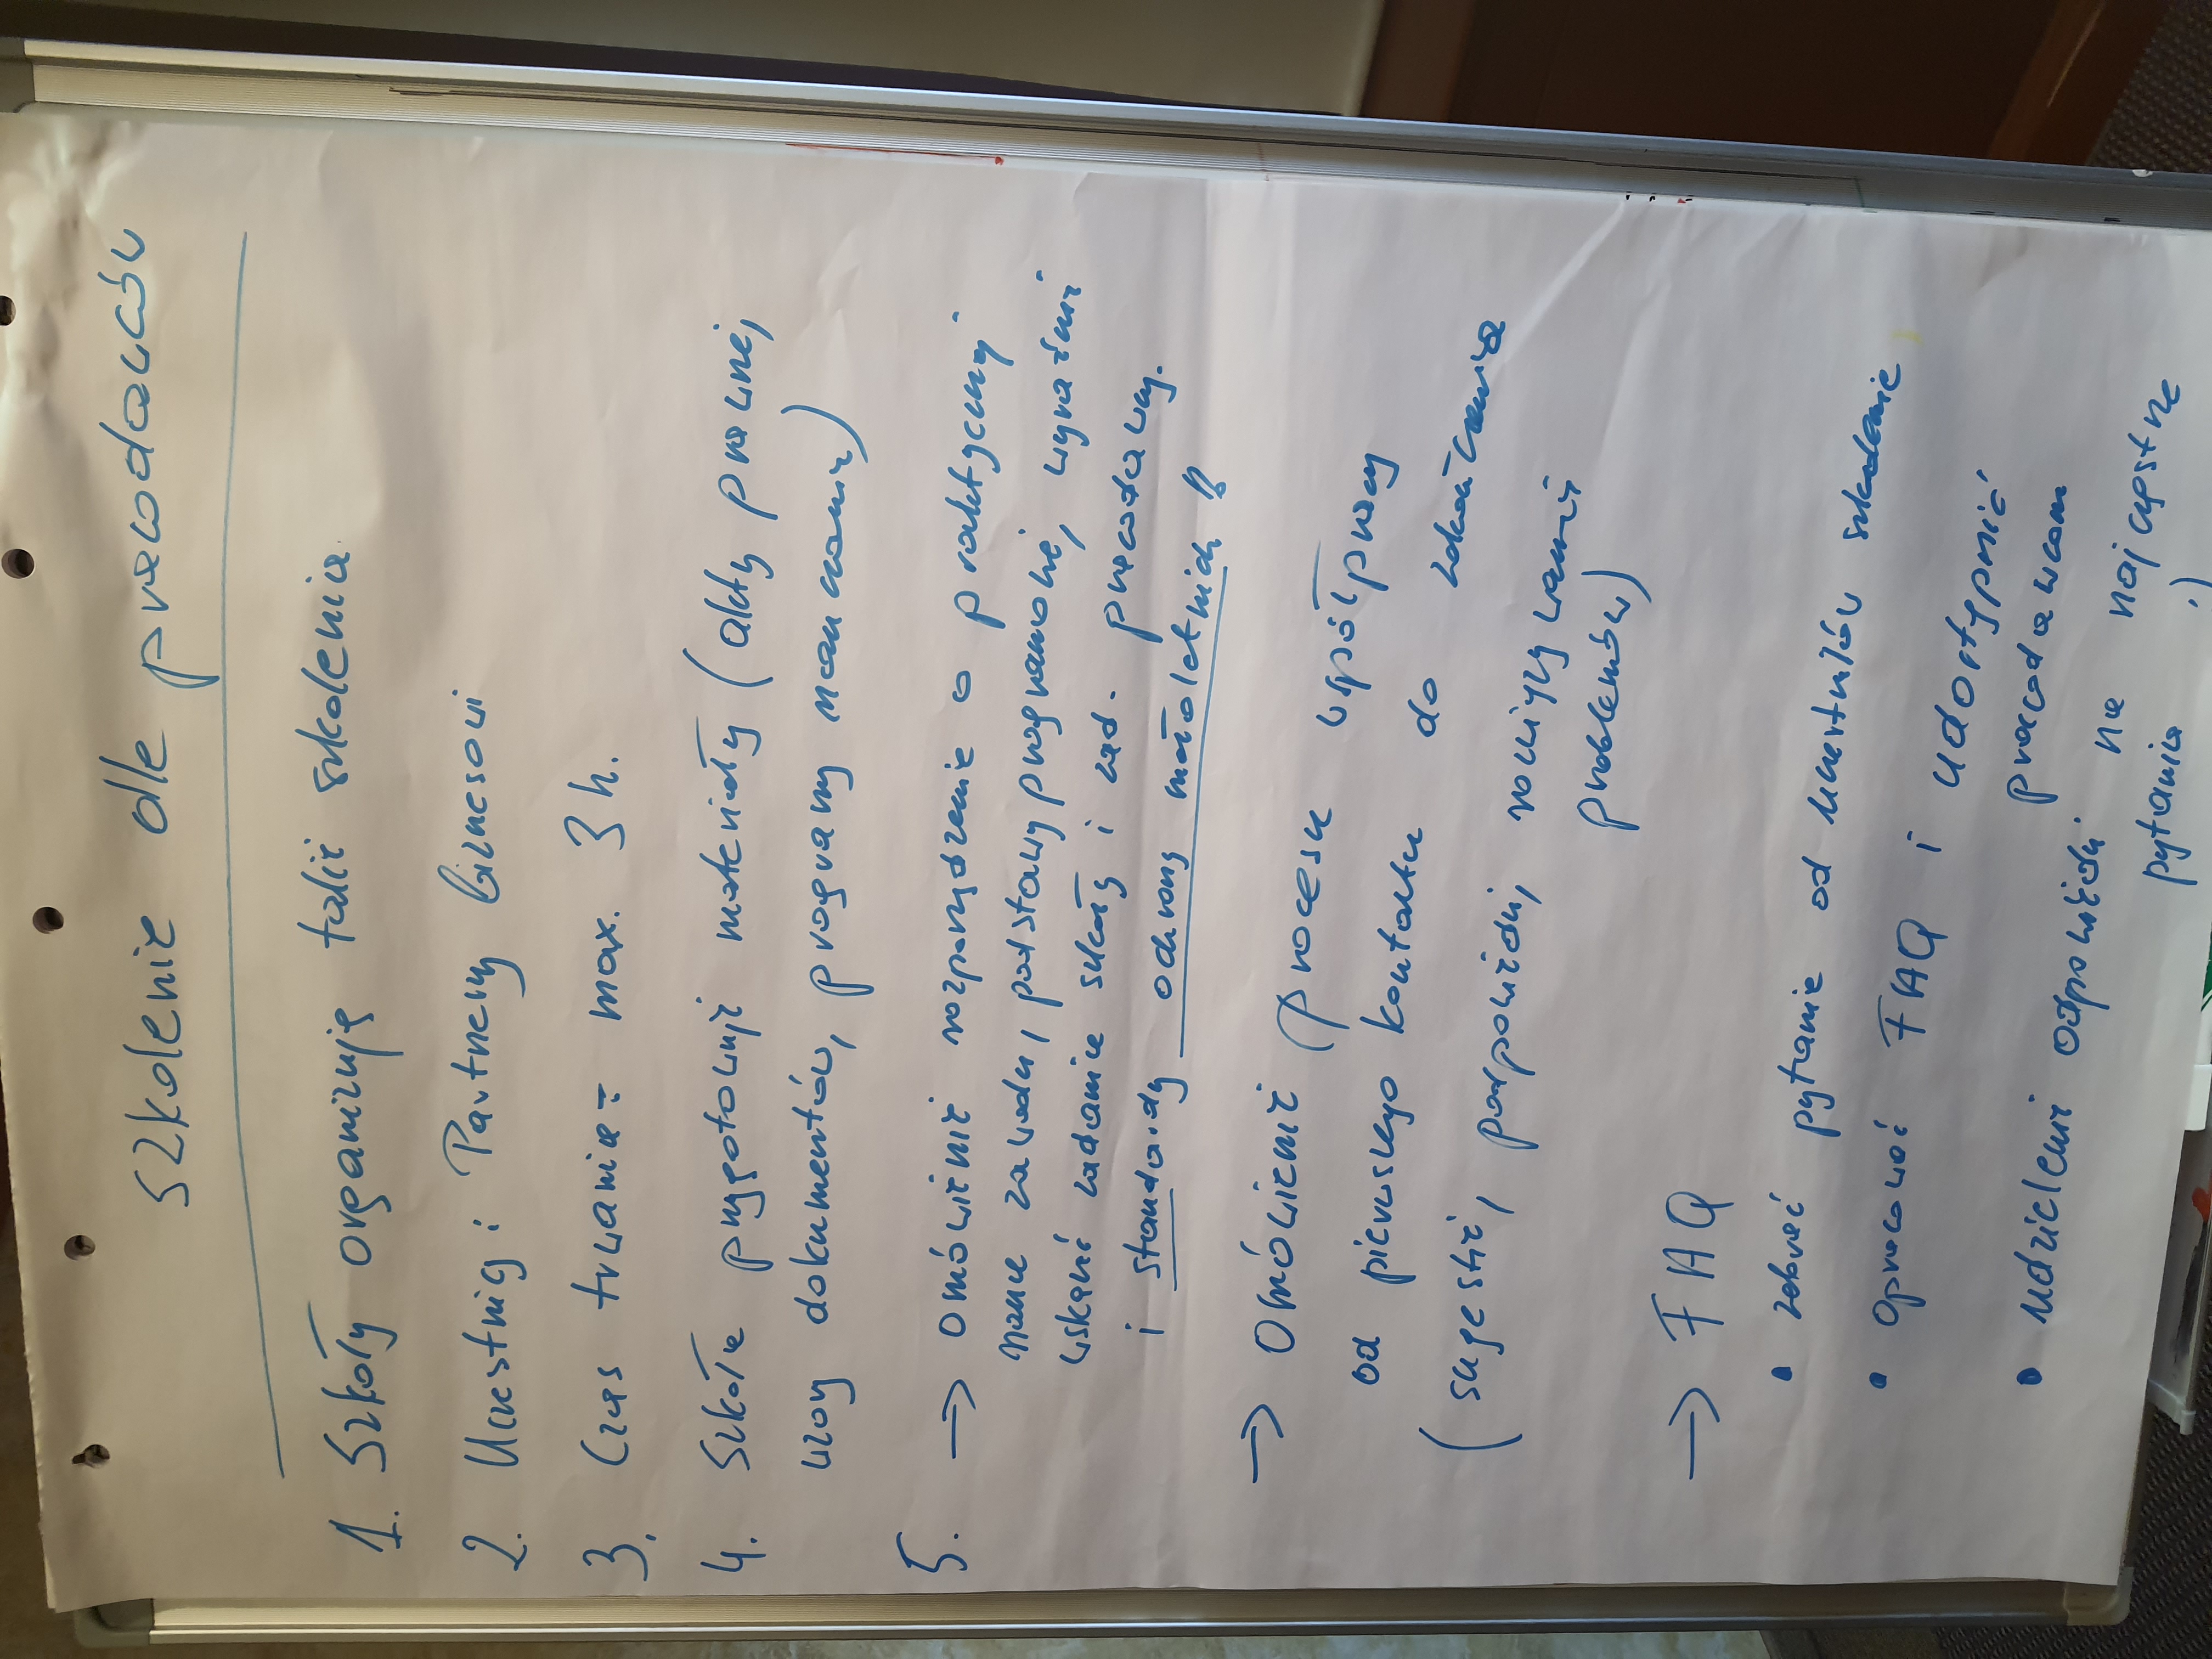 Szkolenie dla pracodawców
1. Szkoły organizują takie szkolenia.
2. Uczestnicy: Partnerzy biznesowi
3. Czas trwania: max. 3 h.
4. Szkoła przygotowuje materiały (akty prawne,
wzory dokumentów, programy nauczania)
5. → Omówienie rozporządzenie o praktycznej
nauce zawodu, podstawy programowe, wyraźnie
wskazać zadania szkoły i zad. pracodawcy.
i standardy ochrony małoletnich!!
→ Omówienie procesu współpracy
od pierwszego kontaktu do zakończenia
(sugestie, podpowiedzi, rozwiązywanie
problemów)
→ FAQ
• zebrać pytanie od uczestników szkolenie
• Opracować FAQ i udostępnić
pracodawcom
• udzieleni odpowiedzi na najczęstsze
pytania :)